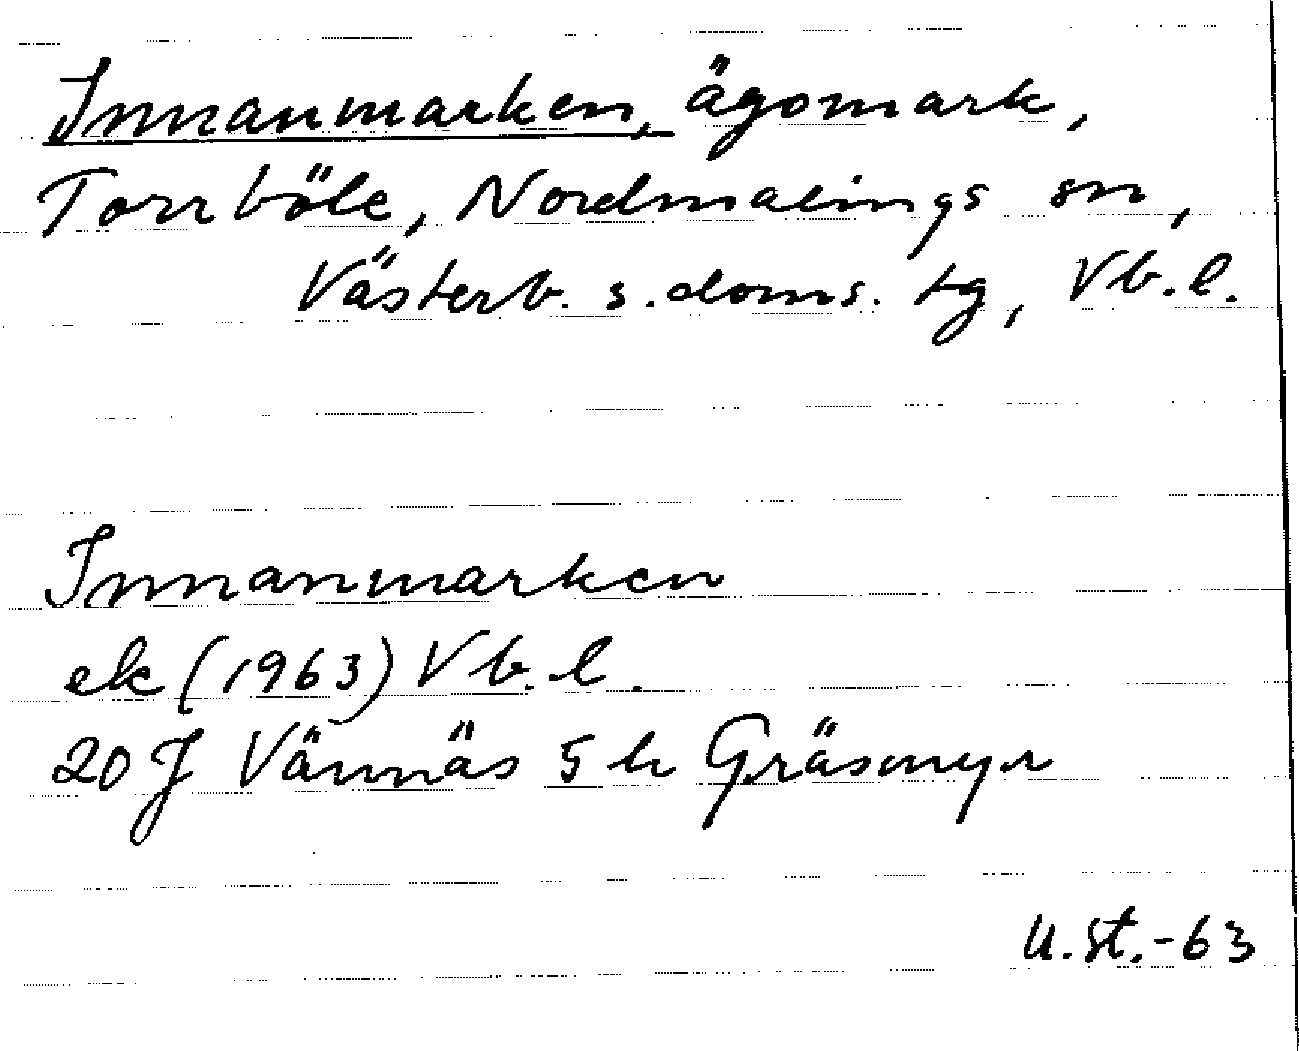 Innanmarken, ägomark,
Torrböle, Nordmalings sn,
Västerb. s. doms. tg, Vb. l.
Innanmarken
ek (1963) Vb. l.
20 J Vännäs 5 h Gräsmyr
U. St. -63